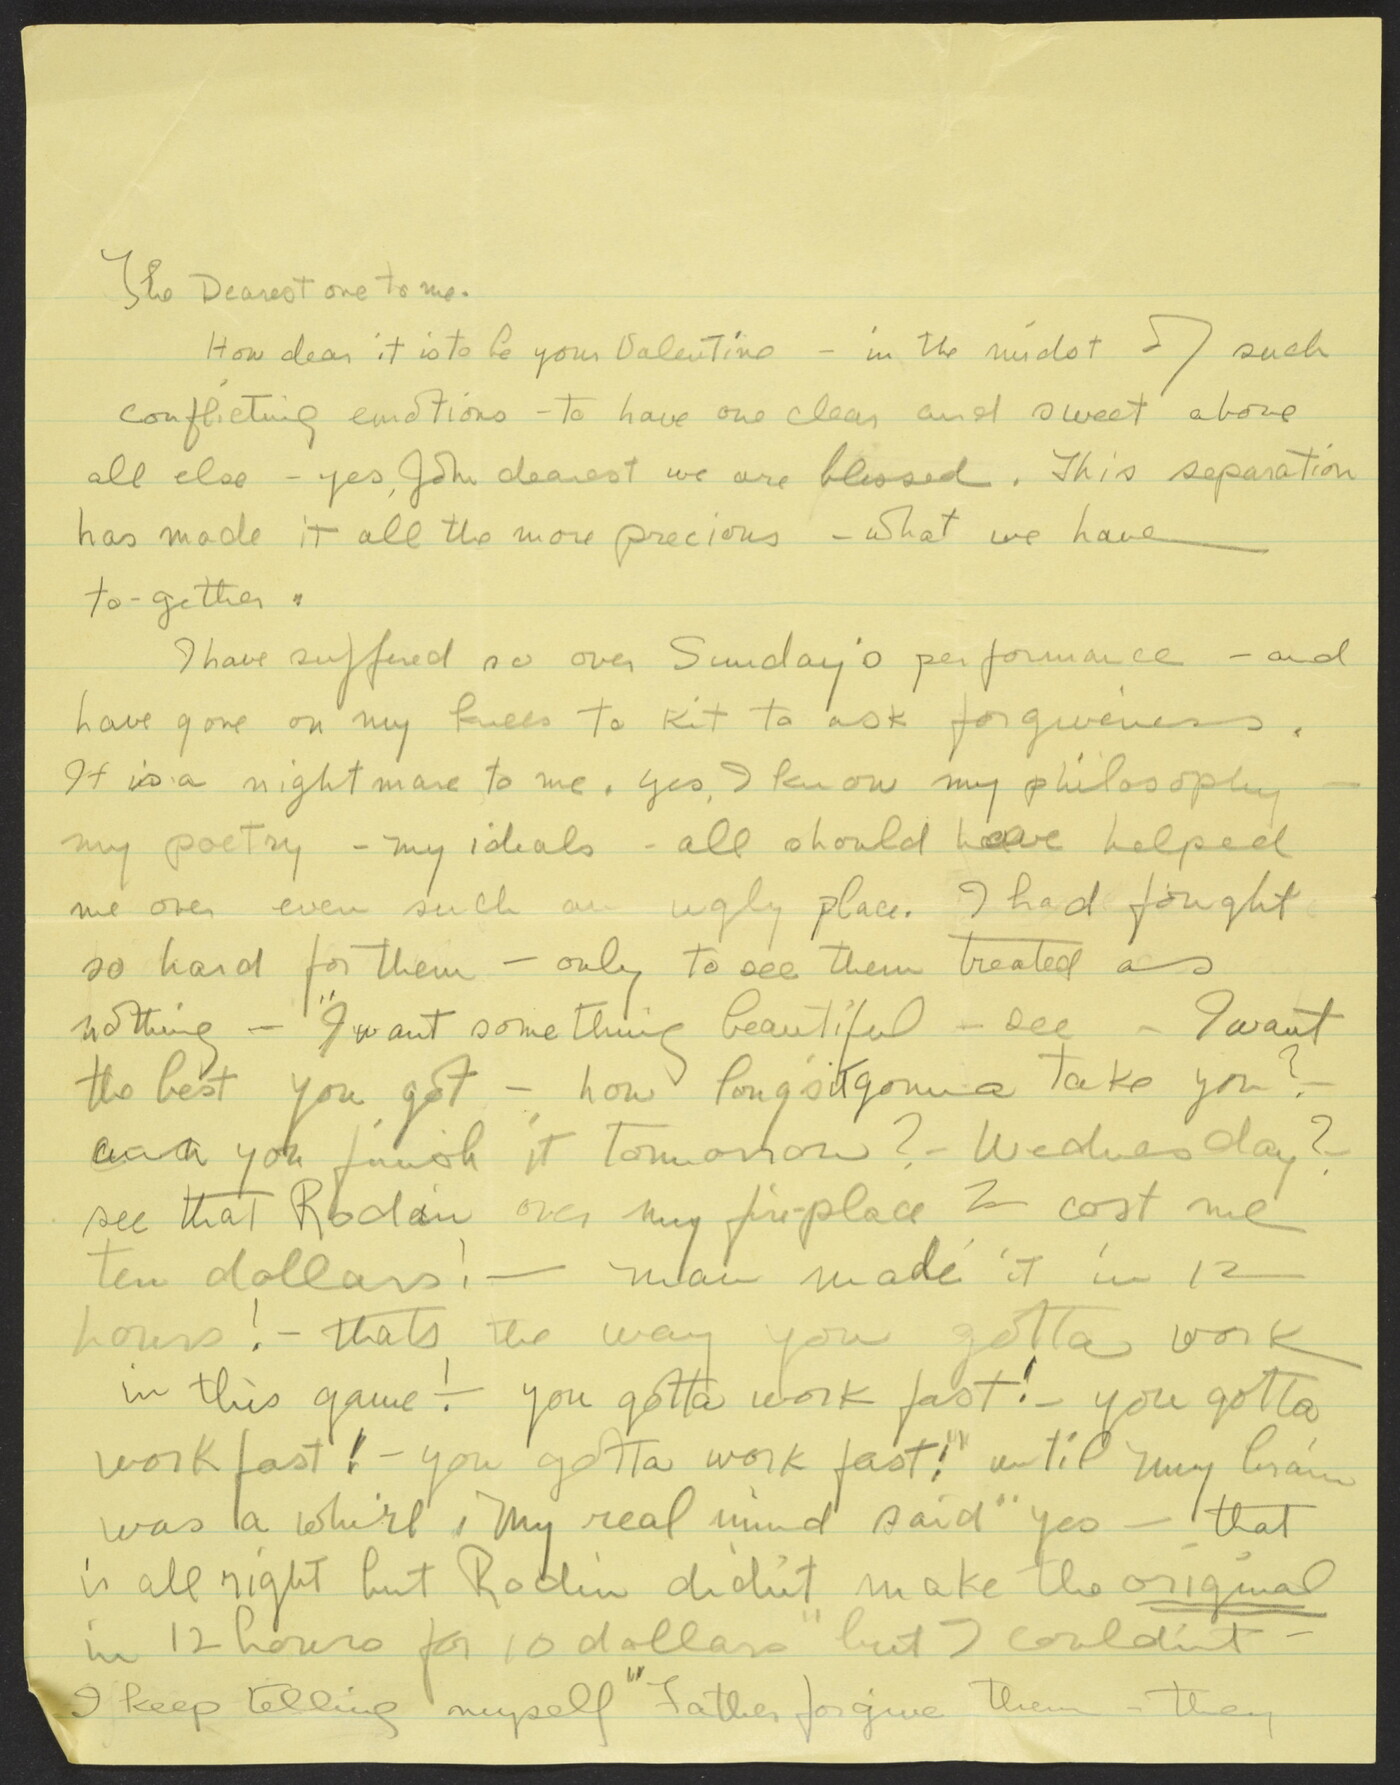 The Dearest one to me.
How dear it is to be your Valentine - in the midst of such
conflicting emotions - to have one clear and sweet above
all else - yes, John dearest we are blessed. This separation
has made it all the more precious - what we have
to-gether.
I have suffered so over Sunday's performance - and
have gone on my knees to Kit to ask forgiveness.
It is a nightmare to me. yes, I know my philosophy -
my poetry - my ideals - all should have helped
me over even such an ugly place. I had fought
so hard for them - only to see them treated as
nothing - "I want something beautiful - see - I want
the best you got - how long's it gonna take you? -
can you finish it tomorrow? - Wednesday? -
see that Rodin over my fire-place - cost me
ten dollars! - man made it in 12
hours! - thats the way you gotta work
in this game! - you gotta work fast! - you gotta
work fast! - you gotta work fast!" until my brain
was a whirl. My real mind said "yes - that
is all right but Rodin didn't make the original
in 12 hours for 10 dollars" but I couldn't -
I keep telling myself "Father forgive them - they